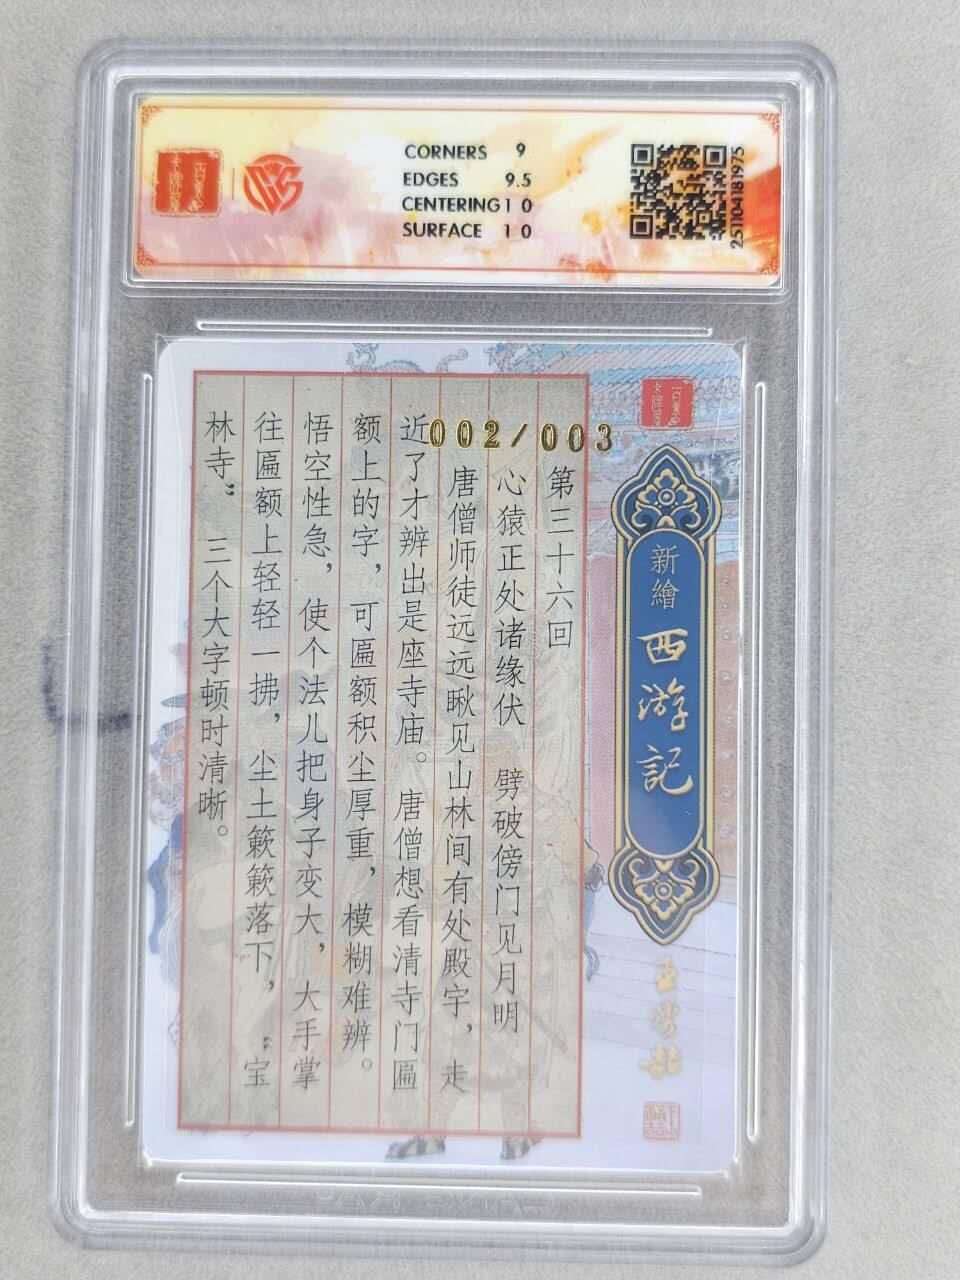 CORNERS 9
EDGES 9.5
CENTERING 10
SURFACE 10
251104181975
002/003
新繪
西游記
第三十六回
心猿正处诸缘伏 劈破傍门见月明
唐僧师徒远远瞅见山林间有处殿宇，走
近了才辨出是座寺庙。唐僧想看清寺门匾
额上的字，可匾额积尘厚重，模糊难辨。
悟空性急，使个法儿把身子变大，大手掌
往匾额上轻轻一拂，尘土簌簌落下，“宝
林寺”三个大字顿时清晰。